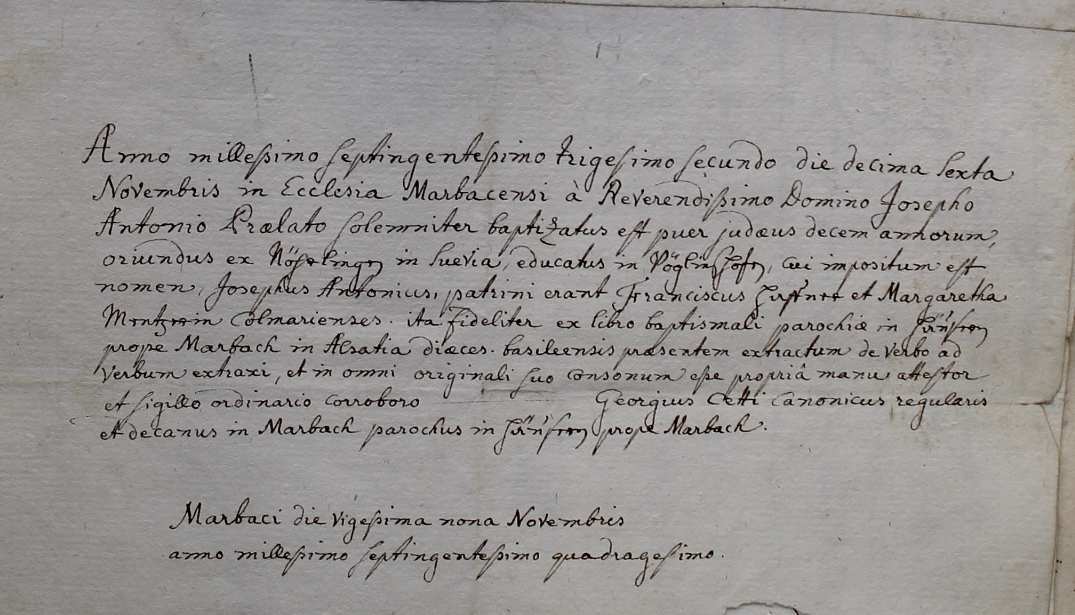 Anno millessimo septingentesimo trigesimo secundo die decima sexta
Novembris in Ecclesia Marbacensi à Reverendissimo Domino Josepho
Antonio Prælato solemniter baptizatus est puer judæus decem annorum,
oriundus ex in Suevia, educatus in Vöglinshofen, cui impositum est
nomen, Josephus Antonius, patrini erant Franciscus et Margaretha
Colmarienses. ita fideliter ex libro baptismali parochiæ in
prope Marbach in Alsatia diæces. basileensis præsentem extractum de verbo ad
verbum extraxi, et in omni originali suo consonum esse propriâ manu attestor
et sigillo ordinario corroboro Georgius Cetti canonicus regularis
et decanus in Marbach parochus in prope Marbach.
Marbaci die vigesima nona Novembris
anno millessimo septingentesimo quadragesimo.